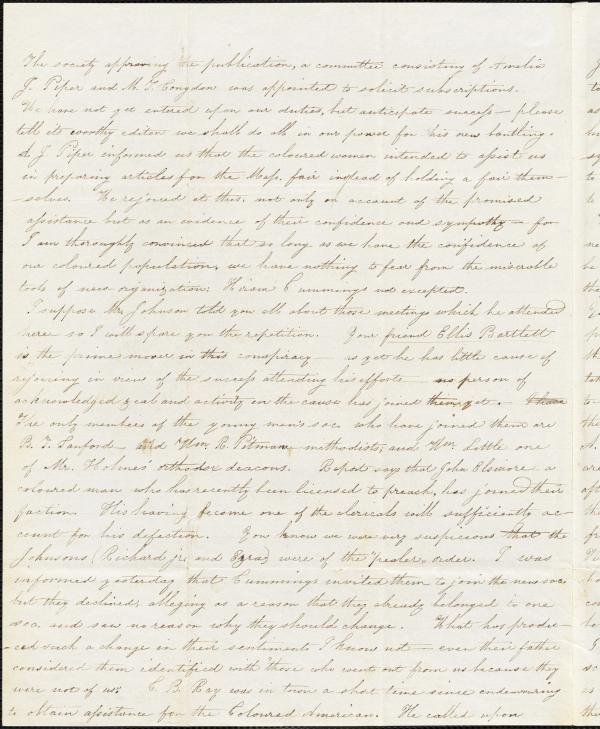 The society approving the publication, a committee consisting of Amelia
J. Piper and M. G. Congdon was appointed to solicit subscriptions.
We have not yet entered upon our duties, but anticipate success — please
tell its worthy editor we shall do all in our power for his new bantling.
A. J. Piper informed us that the coloured women intended to assist us
in preparing articles for the Mass. fair instead of holding a fair them-
-selves. We rejoiced at this, not only on account of the promised
assistance but as an evidence of their confidence and sympathy — for
I am thoroughly convinced that so long as we have the confidence of
our coloured population, we have nothing to fear from the miserable
tools of new organization: Hiram Cummings not excepted.
I suppose Mr. Johnson told you all about those meetings which he attended
here so I will spare you the repetition. Your friend Ellis Bartlett
is the prime mover in this conspiracy — as yet he has little cause of
rejoicing in view of the success attending his efforts — no person of
acknowledged zeal and activity in the cause has joined them yet. — I have
The only members of the young men's soc. who have joined them are
B. T. Sanford — and Wm. R. Pitman, methodists, and Wm. Little one
of Mr. Holmes' orthodox deacons. Report says that John Elsmore a
coloured man who has recently been licensed to preach, has joined their
faction. His having become one of the clericals will sufficiently ac-
count for his defection. You know we were very suspicious that the
Johnsons (Richard jr. and Ezra) were of the "peeler" order. I was
informed yesterday that Cummings invited them to join the new soc.
but they declined, alleging as a reason that they already belonged to one
soc. and saw no reason why they should change. What has produ-
-ced such a change in their sentiments I know not — even their father
considered them identified with those who "went out from us because they
were not of us." C. B. Ray was in town a short time since endeavouring
to obtain assistance for the Coloured American. He called upon